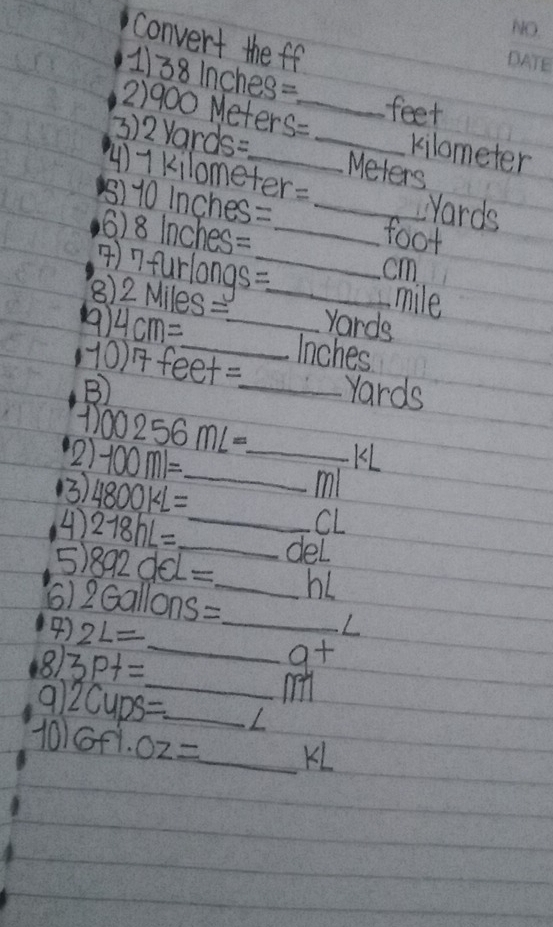 NO.
DATE
Convert the ff
1) 38 Inches = ____ feet
2) 900 Meters = ____ Kilometer
3) 2 Yards = ____ Meters
4) 1 Kilometer = ____ Yards
5) 10 Inches = ____ foot
6) 8 Inches = ____ cm
7) 7 furlongs = ____ mile
8) 2 Miles = ____ Yards
9) 4 cm = ____ Inches
10) 7 feet = ____ Yards
B)
1) 00256 mL = ____ KL
2) 100 ml = ____ ml
3) 4800 KL = ____ CL
4) 218 hL = ____ deL
5) 892 deL = ____ hL
6) 2 Gallons = ____ L
7) 2 L = ____ qt
8) 3 Pt = ____ ml
9) 2 Cups = ____ L
10) 6 fl. oz = ____ KL